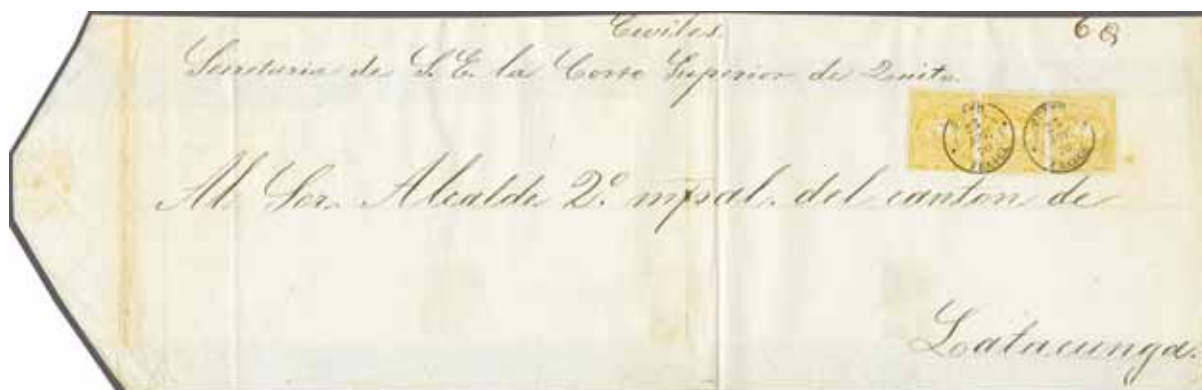 Civiles.
6
Secretaria de S. E. la Corte Superior de Quito.
Al Sor. Alcalde 2º mpal. del canton de
Latacunga.